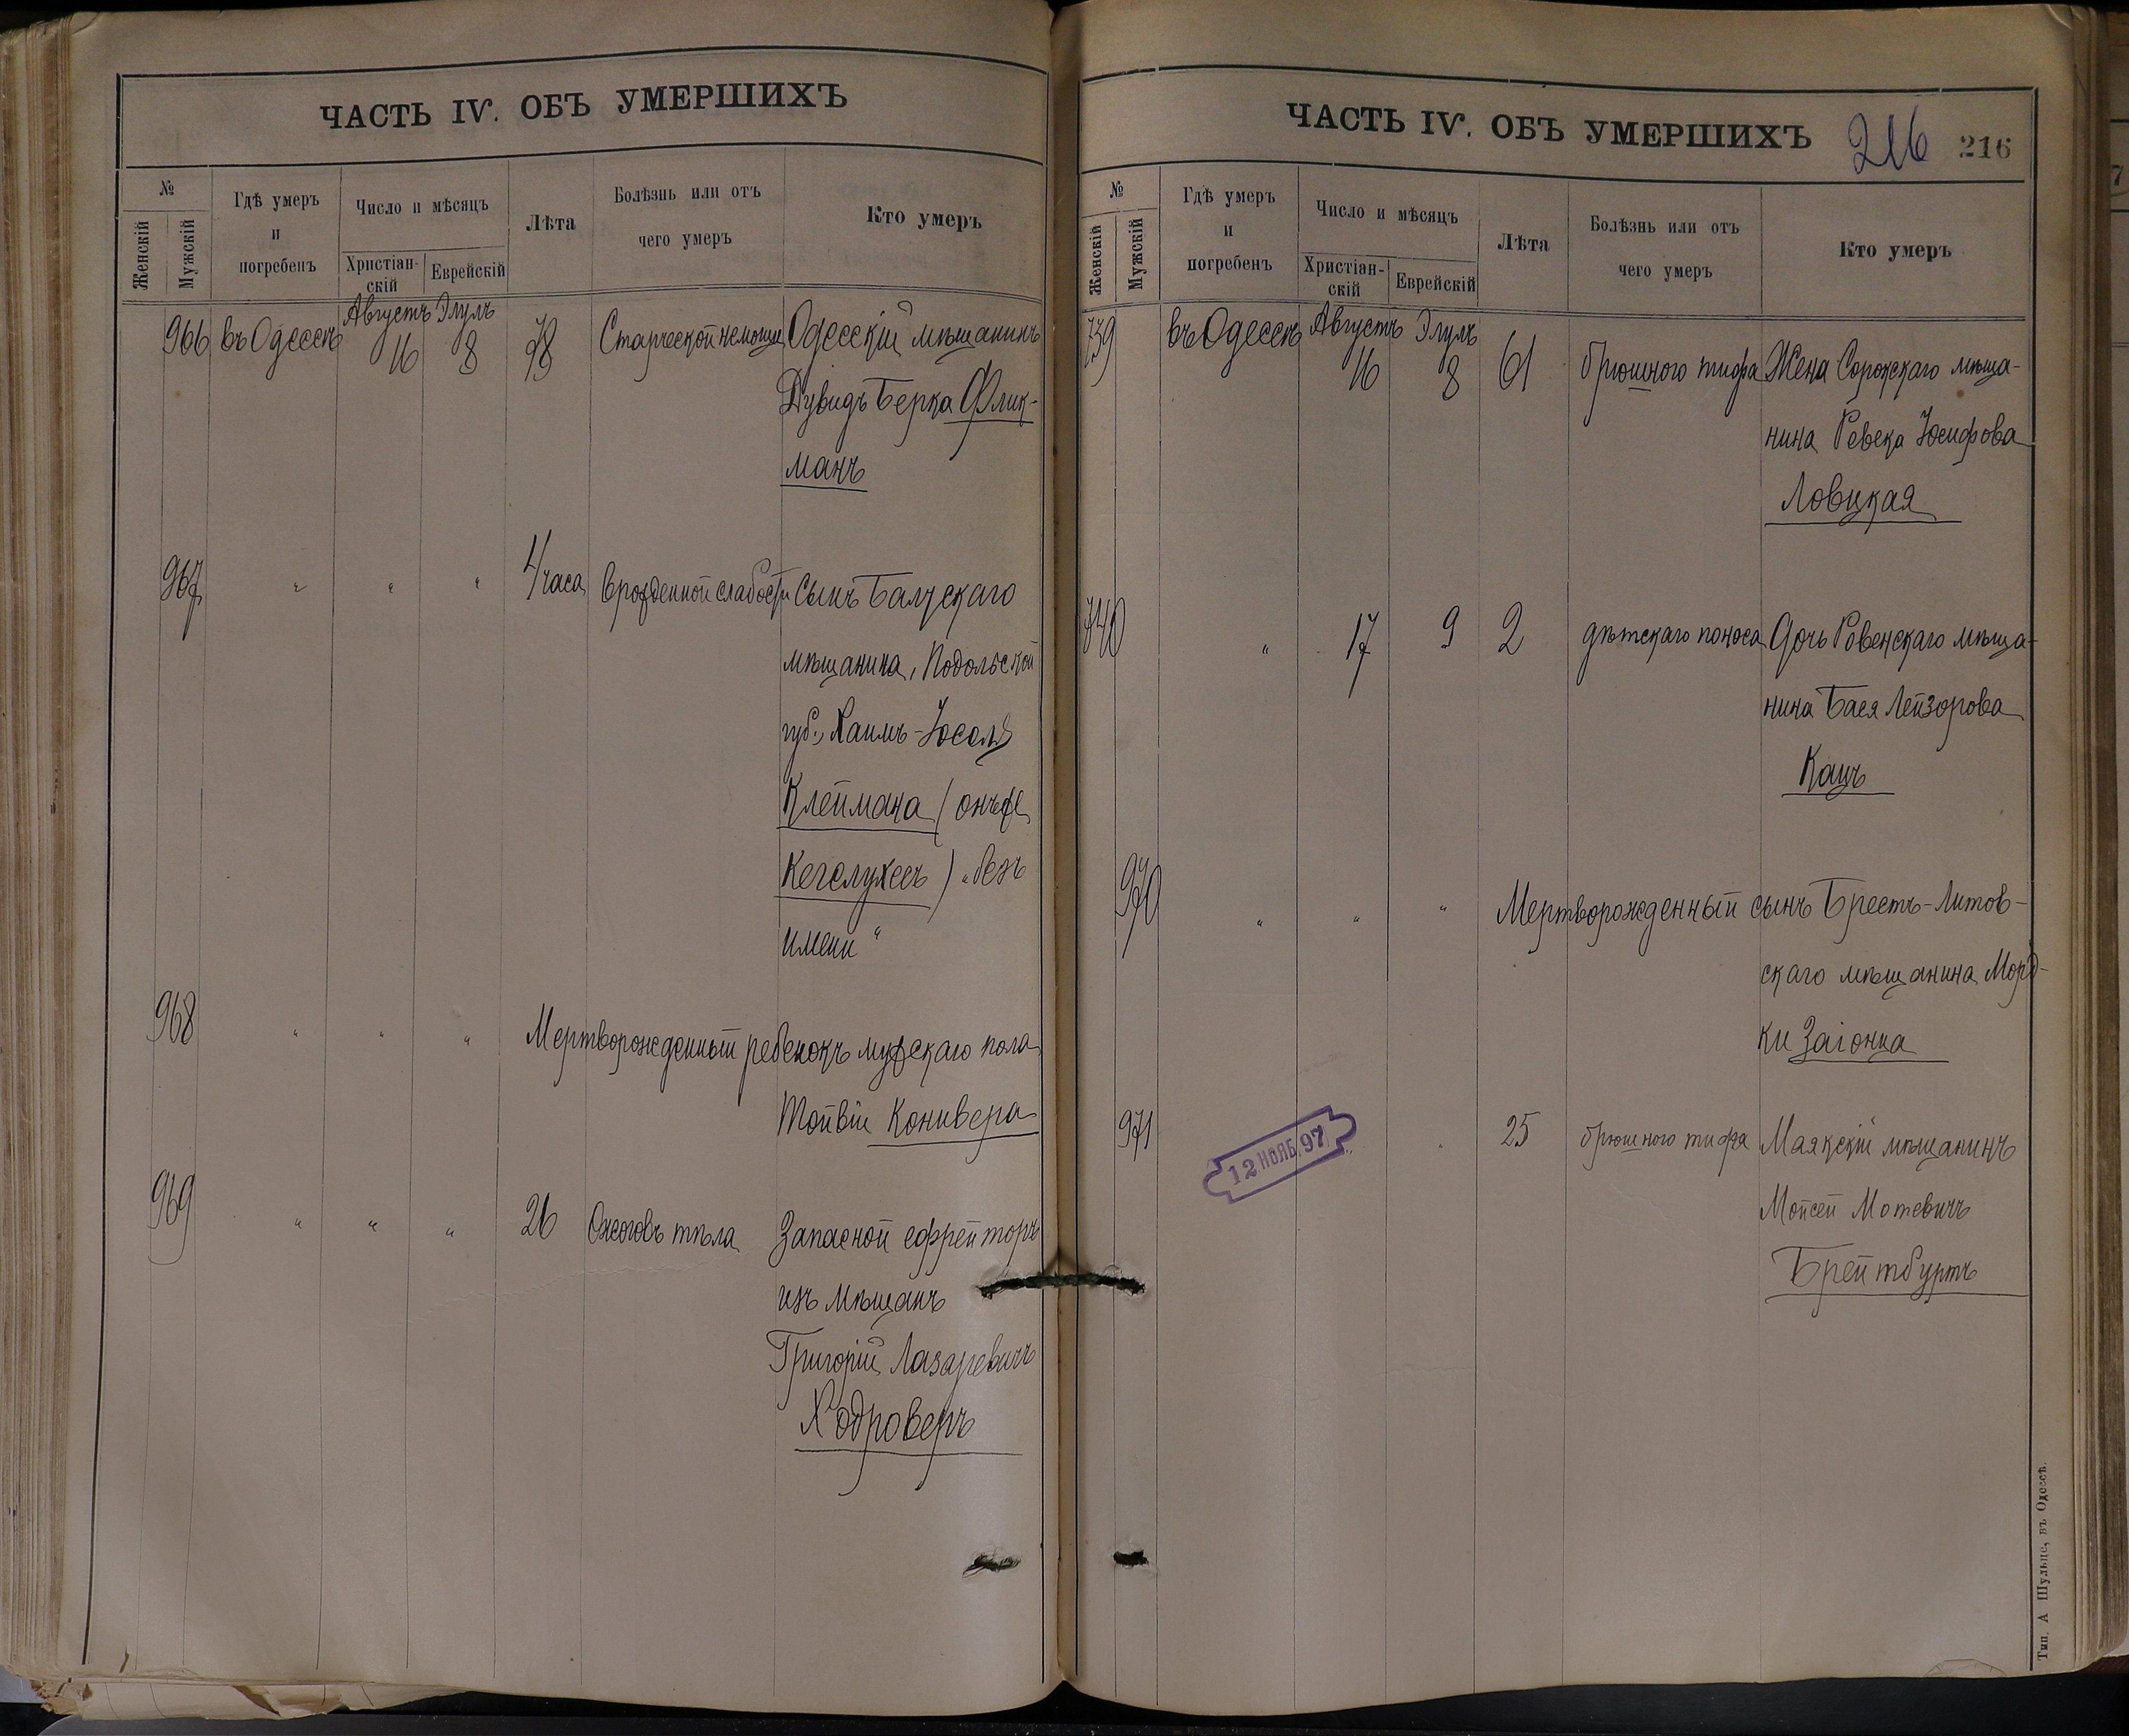 ЧАСТЬ IѴ. ОБЪ УМЕРШИХЪ
№
Женскій
Мужскій
Гдѣ умеръ
и
погребенъ
Число и мѣсяцъ
Христіан-
скій
Еврейскій
Лѣта
Болѣзнь или отъ
чего умеръ
Кто умеръ
Августъ Элулъ
966 въ Одессѣ 16 8 78 Старческой немощи Одесскій мѣщанинъ
Дувидъ Берка Флик-
манъ
967 " " " 4 часа врожденной слабости Сынъ Балтскаго
мѣщанина, Подольской
губ., Хаимъ-Іосель
Клеймана (онъже
Кегелухесъ) "безъ
имени"
968 " " " Мертворожденный ребенокъ мужскаго пола
Тойвіи Конивера
969 " " " 26 Ожоговъ тѣла Запасной ефрейторъ
изъ мѣщанъ
Григорій Лазаревичъ
Ходроверъ
ЧАСТЬ IѴ. ОБЪ УМЕРШИХЪ 216 216
№
Женскій
Мужскій
Гдѣ умеръ
и
погребенъ
Число и мѣсяцъ
Христіан-
скій
Еврейскій
Лѣта
Болѣзнь или отъ
чего умеръ
Кто умеръ
Августъ Элулъ
739 въ Одессѣ 16 8 61 брюшного тифа Жена Сорокскаго мѣща-
нина Ревека Іосифова
Ловцкая
740 " 17 9 2 дѣтскаго поноса Дочь Ровенскаго мѣща-
нина Бася Лейзорова
Кацъ
970 " " " Мертворожденный сынъ Брестъ-Литов-
скаго мѣщанина Морд-
ки Заіонца
971 25 брюшного тифа Маякскій мѣщанинъ
Мойсей Мотевичъ
Брейтбуртъ
12 НОЯБ. 97
Тип. А Шульце, въ Одессѣ.